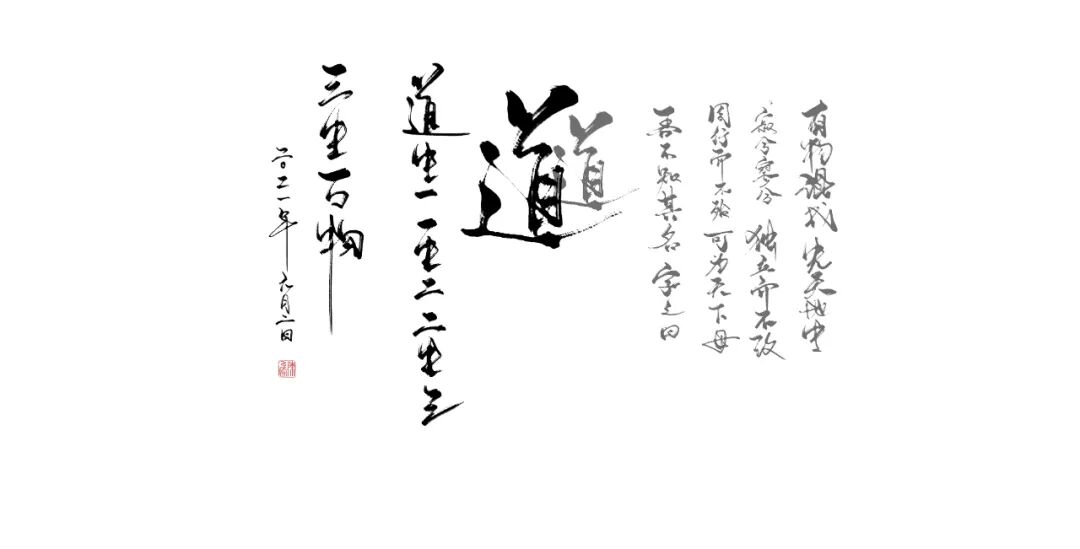 有物混成 先天地生
寂兮寥兮 独立而不改
周行而不殆 可为天下母
吾不知其名 字之曰
道
道
道生一 一生二 二生三
三生万物
二〇二一年 六月二日